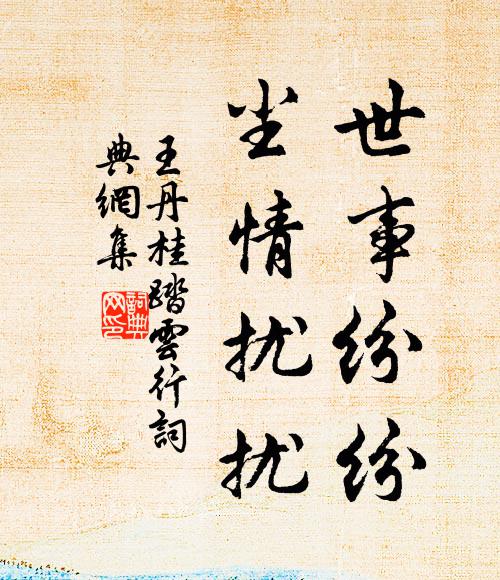 世事纷纷
尘情扰扰
王丹桂踏雲行詞
典網集
詞典
网印